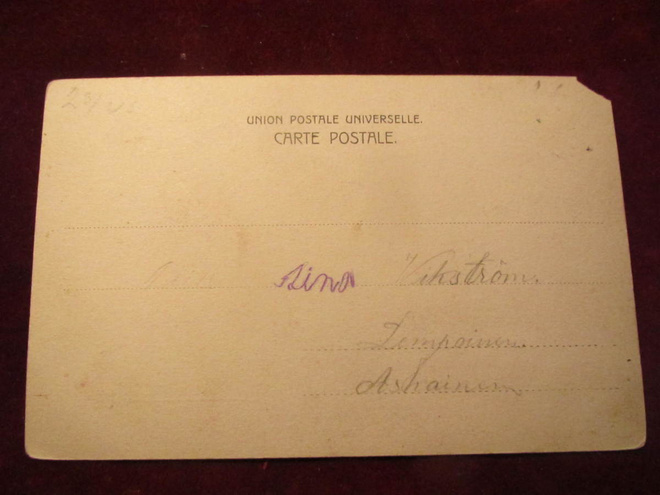 UNION POSTALE UNIVERSELLE.
CARTE POSTALE.
Aina Wikström.
Lempoinen.
Askainen